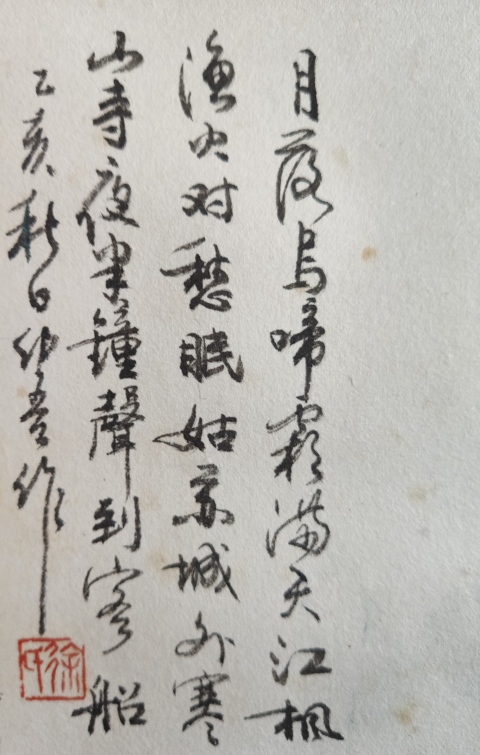 月落烏啼霜满天江枫
渔火对愁眠姑苏城外寒
山寺夜半鐘聲到客船
乙亥秋日仲吾作
徐氏